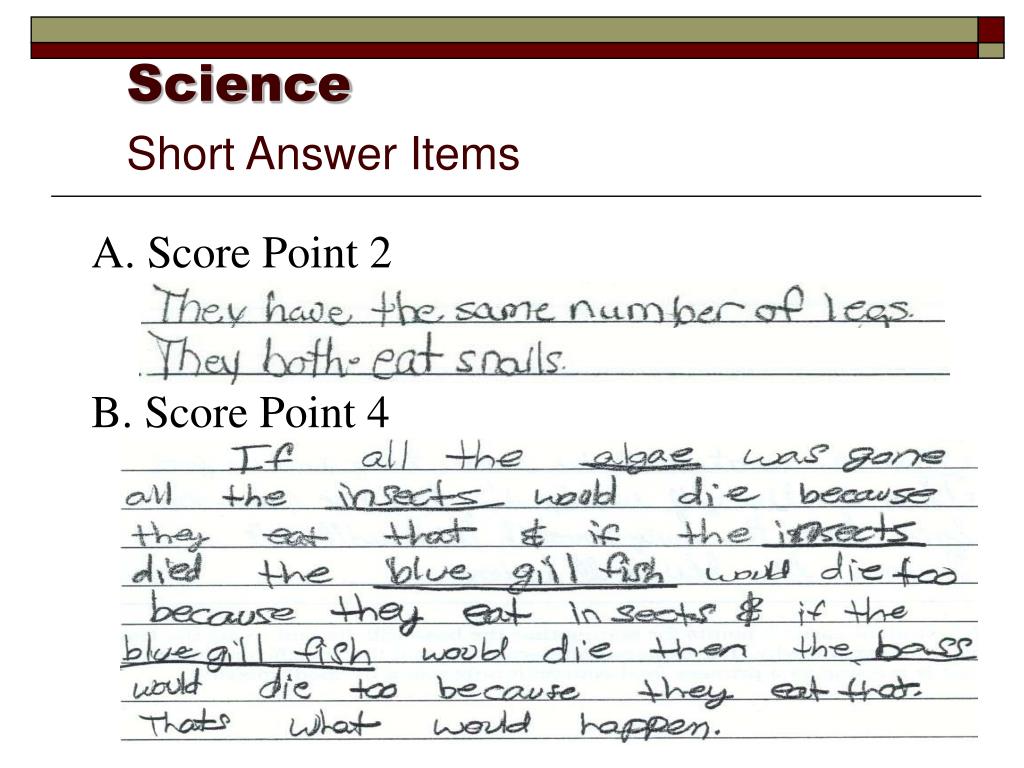 Science
Short Answer Items
A. Score Point 2
They have the same number of legs.
They both eat snails.
B. Score Point 4
If all the algae was gone
all the insects would die because
they eat that & if the insects
died the blue gill fish would die too
because they eat insects & if the
blue gill fish would die then the bass
would die too because they eat that.
Thats what would happen.